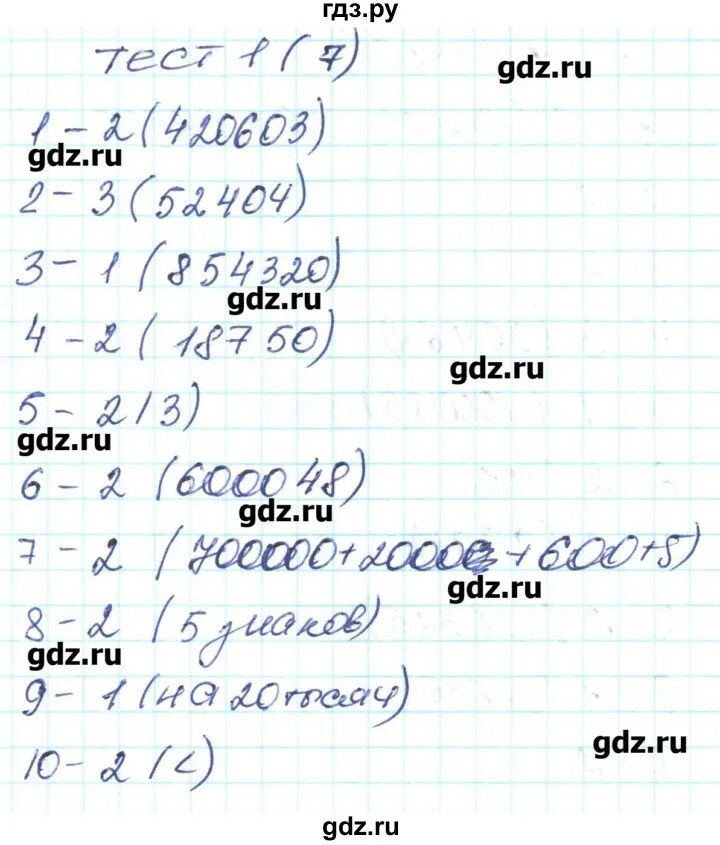 гдз.ру
тест 1 (7)
gdz.ru
1 - 2 (420603)
gdz.ru
2 - 3 (52404)
3 - 1 (854320)
gdz.ru
4 - 2 (18750)
gdz.ru
5 - 2 (3)
gdz.ru
6 - 2 (600048)
gdz.ru
7 - 2 (700000+20000+600+5)
gdz.ru
8 - 2 (5 знаков)
gdz.ru
9 - 1 (на 20 тысяч)
gdz.ru
10 - 2 (<)
gdz.ru